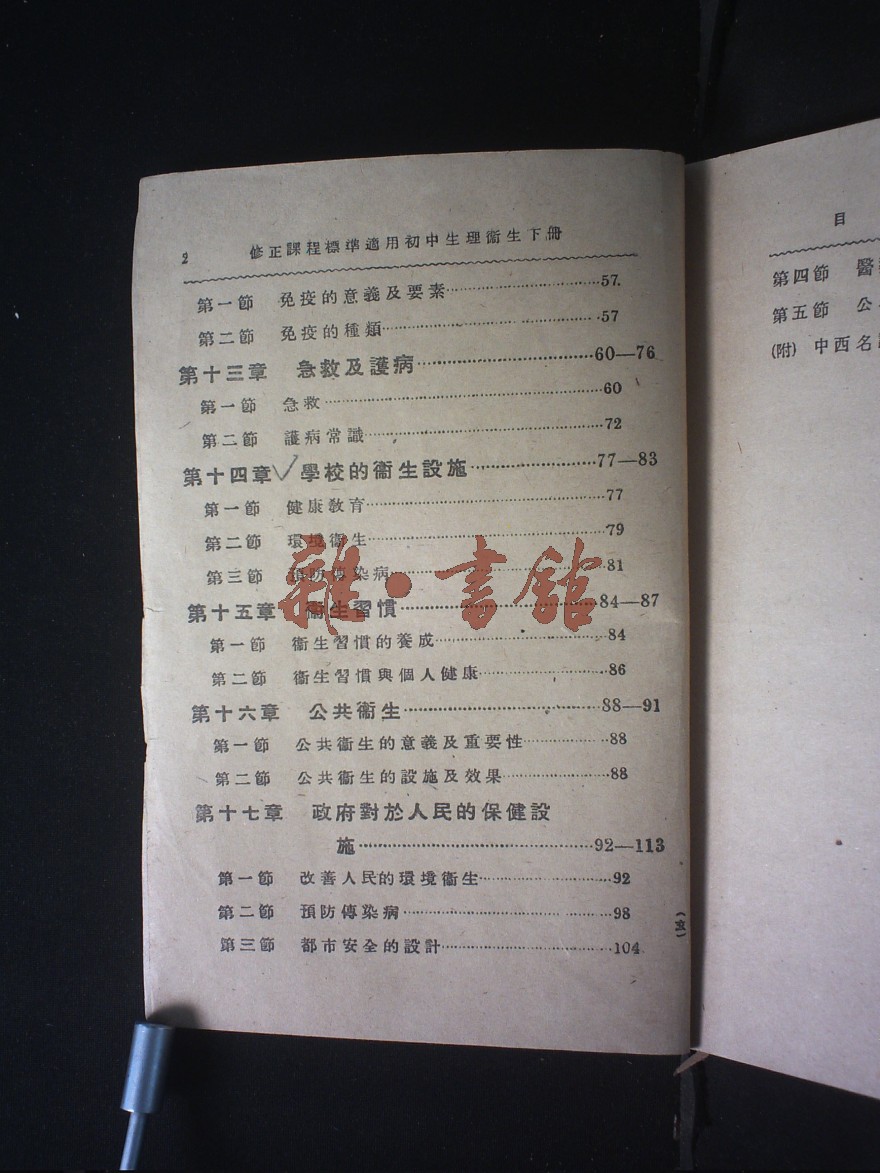 2 修正課程標準適用初中生理衞生下冊
第一節 免疫的意義及要素……57
第二節 免疫的種類……57
第十三章 急救及護病……60—76
第一節 急救……60
第二節 護病常識……72
第十四章 學校的衞生設施……77—83
第一節 健康教育……77
第二節 環境衞生……79
第三節 預防傳染病……81
第十五章 衞生習慣……84—87
第一節 衞生習慣的養成……84
第二節 衞生習慣與個人健康……86
第十六章 公共衞生……88—91
第一節 公共衞生的意義及重要性……88
第二節 公共衞生的設施及效果……88
第十七章 政府對於人民的保健設
施……92—113
第一節 改善人民的環境衞生……92
第二節 預防傳染病……98
第三節 都市安全的設計……104
(玄)
雜·書館
目
第四節 醫
第五節 公
(附) 中西名